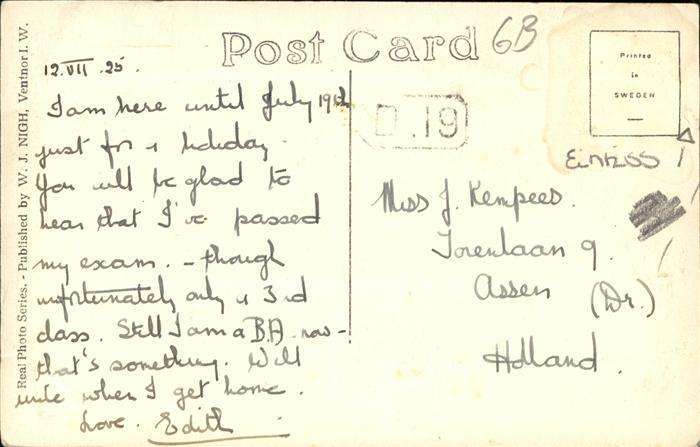 Post Card
6B
Printed
in
SWEDEN
Real Photo Series. - Published by W. J. NIGH, Ventnor I. W.
12.VII.25.
I am here until July 19th
just for a holiday.
You will be glad to
hear that I've passed
my exam. - though
unfortunately only a 3rd
class. Still I am a B.A. now -
that's something. Will
write when I get home.
Love. Edith
D.19
Miss J. Kempees.
Torenlaan 9.
Assen (Dr.)
Holland.